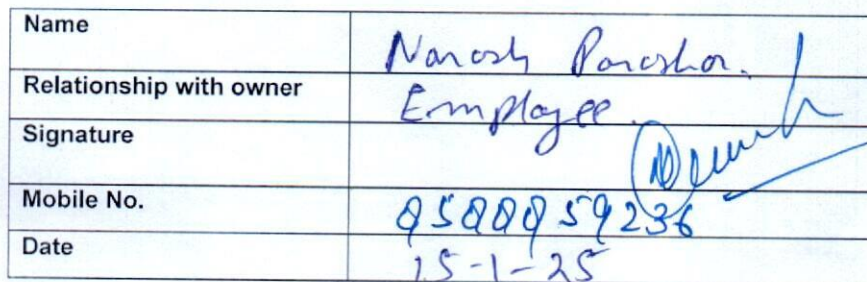 Name Naresh Parashar.
Relationship with owner Employee.
Signature
Mobile No.
Date 15-1-25